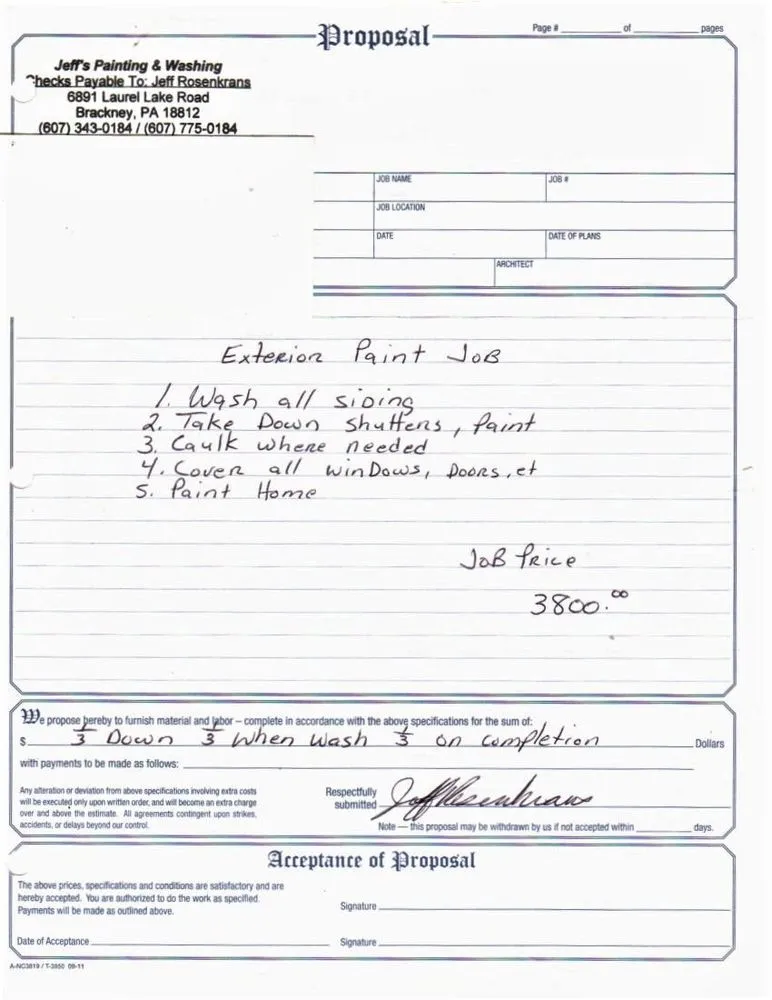 Proposal
Page # of pages
Jeff's Painting & Washing
Checks Payable To: Jeff Rosenkrans
6891 Laurel Lake Road
Brackney, PA 18812
(607) 343-0184 / (607) 775-0184
JOB NAME JOB #
JOB LOCATION
DATE DATE OF PLANS
ARCHITECT
Exterior Paint Job
1. Wash all siding
2. Take Down shutters, paint
3. Caulk where needed
4. Cover all windows, Doors, et
5. Paint Home
Job Price
3800.00
We propose hereby to furnish material and labor – complete in accordance with the above specifications for the sum of:
$ 1/3 Down 1/3 when wash 1/3 on completion Dollars
with payments to be made as follows:
Any alteration or deviation from above specifications involving extra costs
will be executed only upon written order, and will become an extra charge
over and above the estimate. All agreements contingent upon strikes,
accidents, or delays beyond our control.
Respectfully
submitted Jeff Rosenkrans
Note — this proposal may be withdrawn by us if not accepted within days.
Acceptance of Proposal
The above prices, specifications and conditions are satisfactory and are
hereby accepted. You are authorized to do the work as specified.
Payments will be made as outlined above.
Signature
Date of Acceptance Signature
A-NC3819 / T-3850 09-11